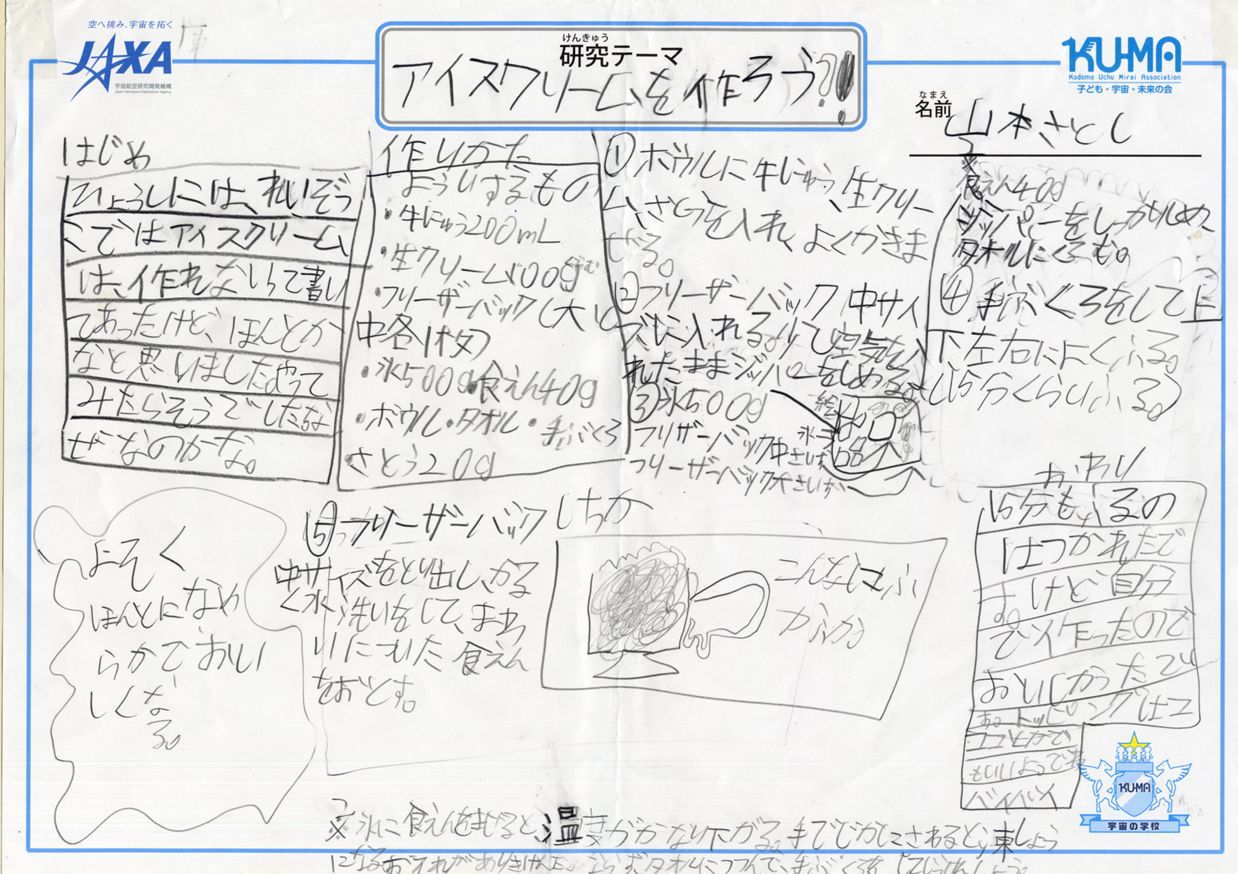 空へ挑み、宇宙を拓く
JAXA
宇宙航空研究開発機構
Japan Aerospace Exploration Agency
けんきゅう
研究テーマ
アイスクリームを作ろう?!
KU-MA
Kodomo Uchu Mirai Association
子ども・宇宙・未来の会
なまえ
名前
山本さとし
はじめ
ひょうしには、れいぞう
こではアイスクリーム
は、作れないって書い
てあったけど、ほんとか
なと思いましたやって
みたらそうでしたな
ぜなのかな。
作りかた
よういするもの
・牛にゅう200mL
・生クリーム100g
・フリーザーバック(大と
中各1枚)
・氷500g・食えん40g
・ボウル・タオル・手ぶくろ
さとう20g
①ボウルに牛にゅう、生クリー
ム、さとうを入れ、よくかきま
ぜる。
②フリーザーバック中サイ
ズに入れる少し空気を入
れたままジッパーをしめる。
③氷500g
フリーザーバック中さいず
フリーザーバック大さいず
氷
食えん40g
ジッパーをしっかりしめ、
タオルにくるむ。
④手ぶくろをして上
下左右によくふる。
(15分くらいふる)
⑤フリーザーバック
中サイズをとり出し、かる
く水洗いをして、まわ
りについた食えん
をおとす。
よそく
ほんとになめ
らかで、おい
しくな
る。
しちか
こんなにもふ
かふか
おわり
15分もふるの
はつかれたで
す。けど自分
で作ったので
おいしかったで
す。トッピングはコ
ココとかで
もいいよってね
バイバイ
※氷に食えんをまぜると、温度がかなり下がる。手でじかにさわると、凍しょう
になるおそれがあり
KU-MA
宇宙の学校